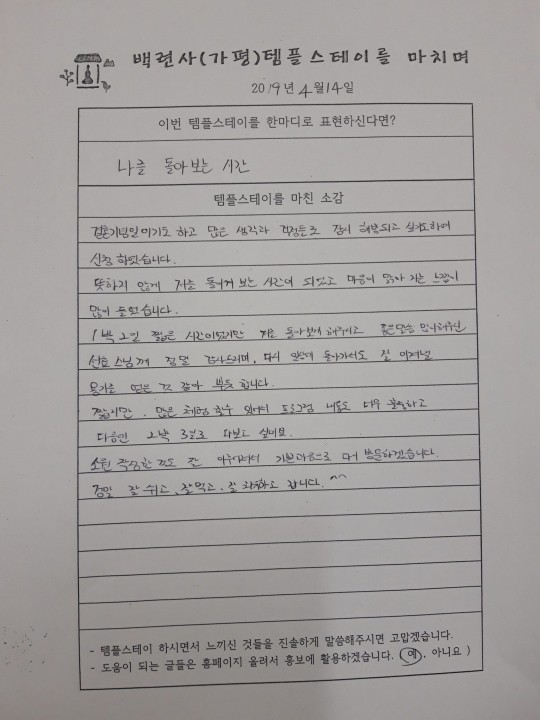 백련사(가평)템플스테이를 마치며
2019년 4월 14일
이번 템플스테이를 한마디로 표현하신다면?
나를 돌아보는 시간
템플스테이를 마친 소감
결혼기념일이기도 하고 많은 생각과 걱정들로 잠시 해방되고 싶기도하여
신청 하였습니다.
뜻하지 않게 저를 돌이켜 보는 시간이 되었고 마음이 맑아 지는 느낌이
많이 들었습니다.
1박 2일 짧은 시간이었지만 저를 돌아보게 해주시고 좋은말씀 많이해주신
선효스님께 정말 감사드리며, 다시 돌아가서도 잘 이겨낼
용기를 얻은 것 같아 뿌듯합니다.
짧지만, 많은 체험 할수 있어서 프로그램 내용도 너무 훌륭하고
다음엔 2박 3일로 와보고 싶네요.
소원 작성한 것도 잘 이루어져서 기쁜마음으로 다시 방문하겠습니다.
정말 잘 쉬고, 잘먹고, 잘 갑니다. ^^
- 템플스테이 하시면서 느끼신 것들을 진솔하게 말씀해주시면 고맙겠습니다.
- 도움이 되는 글들은 홈페이지 올려서 홍보에 활용하겠습니다. (예, 아니요 )